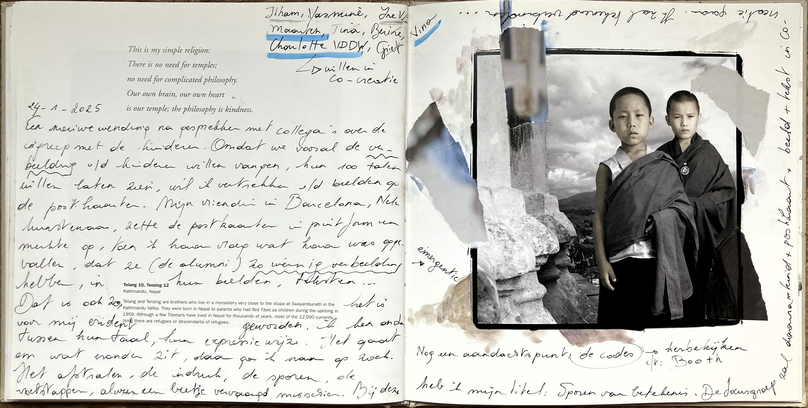 Ilham, Yasmine,
Maarten, Tina,
Charlotte VDDW, Griet
Nina
willen in
co-creatie
This is my simple religion:
There is no need for temples;
no need for complicated philosophy.
Our own brain, our own heart
is our temple; the philosophy is kindness.
24-1-2025
Een nieuwe wending na gesprekken met collega's over de
ingreep met de kinderen. Omdat we vooral de ver-
beelding v/d kinderen willen vangen, hun 100 talen
willen laten zien, wil ik vertrekken v/d beelden op
de postkaarten. Mijn vriendin in Barcelona, Nele
kunstenaar, zette de postkaarten in puntjform en
merkte op, toen ik haar vroeg wat haar was opge-
vallen, dat ze (de alumni) zo weinig verbeelding
hebben, in hun beelden, teksten...
Tsiang 10, Tenzing 12
Kathmandu, Nepal
Tsiang and Tenzing are brothers who live in a monastery very close to the stupa at Swayambunath in the
Kathmandu Valley. They were born in Nepal to parents who had fled Tibet as children during the uprising in
1959. Although a few Tibetans have lived in Nepal for thousands of years, most of the 12,000 currently
there are refugees or descendants of refugees.
Dat is ook zo, het is
voor mij evident geworden. Ik ben onder
tussen hun taal, hun expressie wijze. Het gaat
om wat eronder zit, daar ga ik naar op zoek.
Het aftralen, de indruk, de sporen, de
voetstappen, alweer een beetje vervaagd misschien. Bij deze
emergentie
Nog een aandachtspunt: de codes → herbekijken
v/: Booth
heb ik mijn titel: Sporen van betekenis. De focusgroep
zal daarna, kind + postkaart + beeld + tekst in co-